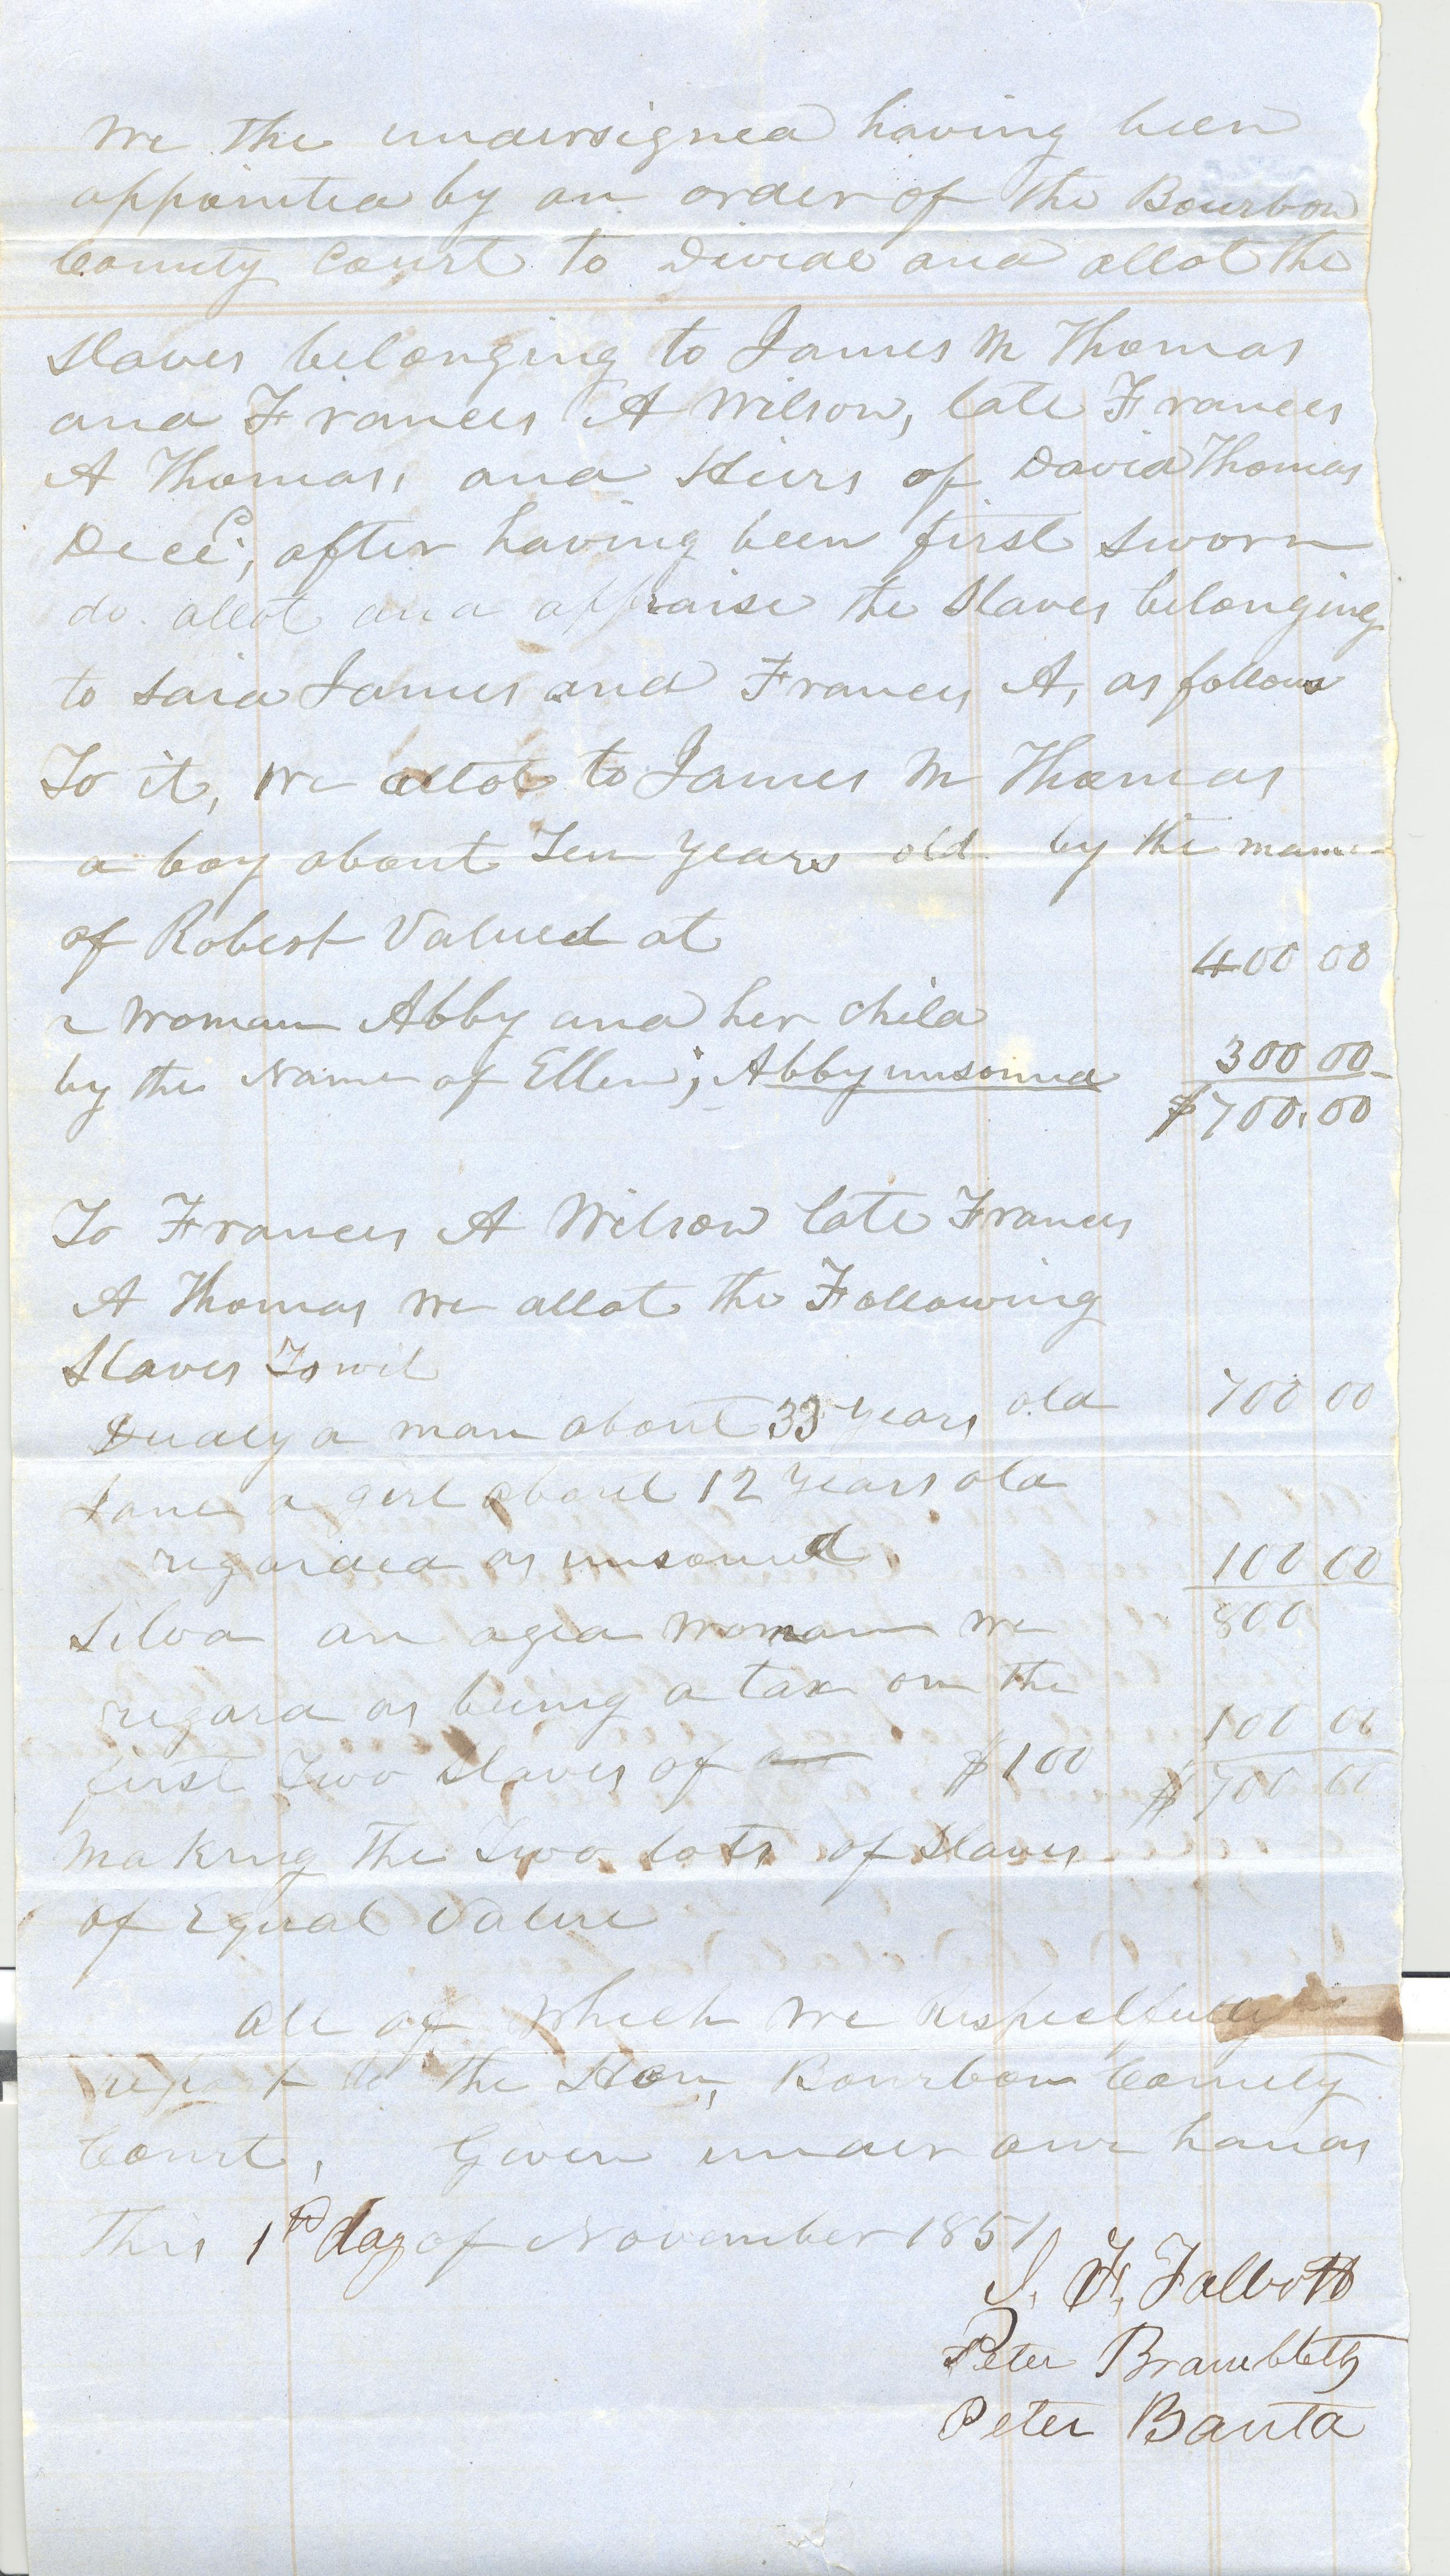 We the undersigned having been
appointed by an order of the Bourbon
County Court to Divide and allot the
Slaves belonging to James M Thomas
and Frances A Wilson, late Frances
A Thomas, and Heirs of David Thomas
Decd, after having been first Sworn
do allot and appraise the Slaves belonging
to said James and Frances A, as follows
To it, We allot to James M Thomas
a boy about Ten years old by the name
of Robert Valued at 400 00
a Woman Abby and her child
by the Name of Ellen; Abby unsound 300 00
$700.00
To Frances A Wilson late Frances
A Thomas we allot the Following
Slaves Towit
a man about 33 years old 700 00
Jane a girl about 12 years old
regarded as unsound, 100 00
Silva an aged Woman we 800
regard as being a tax on the
first Two Slaves of $100 100 00
$700 00
Making The Two Lots of Slaves
of Equal Value
All of Which We Respectfully
report to the Hon, Bourbon County
Court, Given under our hands
This 1st day of November 1851
F, Talbott
Peter Brambleth
Peter Banta